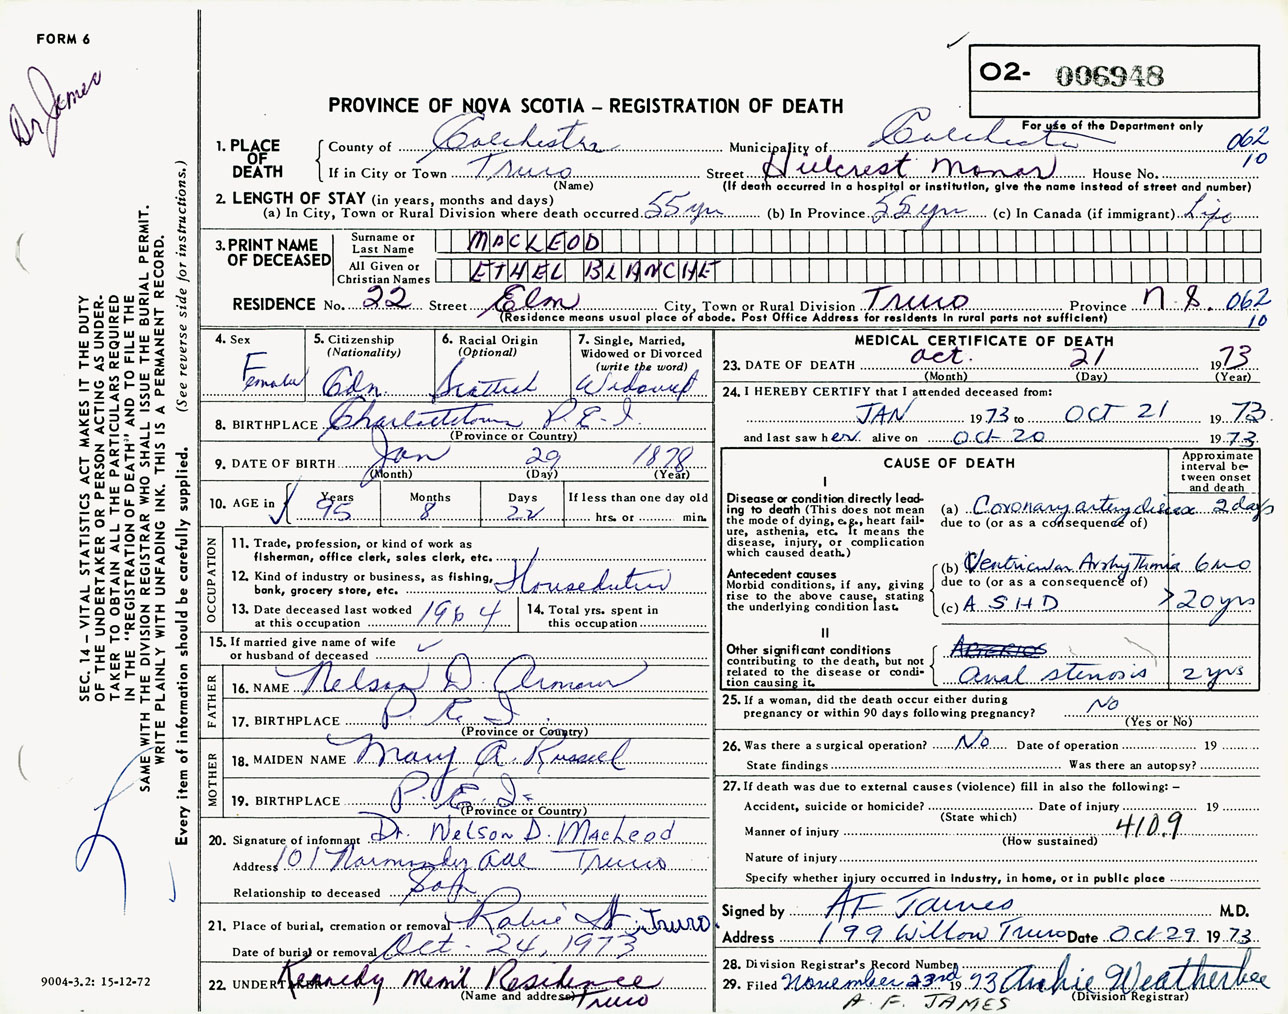 FORM 6
Dr James
O2- 006948
For use of the Department only
PROVINCE OF NOVA SCOTIA – REGISTRATION OF DEATH
1. PLACE OF DEATH
County of Colchester Municipality of Colchester 062
If in City or Town Truro Street Hillcrest Manor House No. 10
(Name) (If death occurred in a hospital or institution, give the name instead of street and number)
2. LENGTH OF STAY (in years, months and days)
(a) In City, Town or Rural Division where death occurred. 55 yrs (b) In Province 55 yrs (c) In Canada (if immigrant). Life
3. PRINT NAME OF DECEASED
Surname or Last Name MACLEOD
All Given or Christian Names ETHEL BLANCHE
RESIDENCE No. 22 Street Elm City, Town or Rural Division Truro Province N.S. 062
(Residence means usual place of abode. Post Office Address for residents in rural parts not sufficient) 10
4. Sex Female
5. Citizenship (Nationality) Cdn.
6. Racial Origin (Optional) Scottish
7. Single, Married, Widowed or Divorced (write the word) Widowed
8. BIRTHPLACE Charlottetown P.E.I.
(Province or Country)
9. DATE OF BIRTH Jan 29 1878
(Month) (Day) (Year)
10. AGE in Years 95 Months 8 Days 22 If less than one day old hrs. or min.
OCCUPATION
11. Trade, profession, or kind of work as fisherman, office clerk, sales clerk, etc.
12. Kind of industry or business, as fishing, bank, grocery store, etc. Houseduties
13. Date deceased last worked at this occupation 1964
14. Total yrs. spent in this occupation.
15. If married give name of wife or husband of deceased
FATHER
16. NAME Nelson D. Armour
17. BIRTHPLACE P.E.I.
(Province or Country)
MOTHER
18. MAIDEN NAME Mary A. Russell
19. BIRTHPLACE P.E.I.
(Province or Country)
20. Signature of informant Dr. Nelson D. MacLeod
Address 101 Normandy Ave Truro
Relationship to deceased Son
21. Place of burial, cremation or removal Robie St. Truro.
Date of burial or removal Oct. 24, 1973
22. UNDERTAKER Kennedy Mem'l Residence
(Name and address) Truro
MEDICAL CERTIFICATE OF DEATH
23. DATE OF DEATH Oct. 21 1973
(Month) (Day) (Year)
24. I HEREBY CERTIFY that I attended deceased from:
JAN 1973 to OCT 21 1973.
and last saw her alive on OCT 20 1973
CAUSE OF DEATH
Approximate interval between onset and death
I
Disease or condition directly leading to death (This does not mean the mode of dying, e.g., heart failure, asthenia, etc. It means the disease, injury, or complication which caused death.)
(a) Coronary artery disease 2 days
due to (or as a consequence of)
Antecedent causes
Morbid conditions, if any, giving rise to the above cause, stating the underlying condition last.
(b) Ventricular Arrhythmia 6 mo
due to (or as a consequence of)
(c) A S H D >20 yrs
II
Other significant conditions contributing to the death, but not related to the disease or condition causing it.
Anal stenosis 2 yrs
25. If a woman, did the death occur either during pregnancy or within 90 days following pregnancy? No
(Yes or No)
26. Was there a surgical operation? No Date of operation 19
State findings Was there an autopsy?
27. If death was due to external causes (violence) fill in also the following: –
Accident, suicide or homicide? Date of injury 19
(State which)
Manner of injury 410.9
(How sustained)
Nature of injury
Specify whether injury occurred in industry, in home, or in public place
Signed by AF James M.D.
Address 199 Willow Truro Date Oct 29 1973
28. Division Registrar's Record Number
29. Filed November 23rd 1973 Archie Weatherbee
(Division Registrar)
A. F. JAMES
SEC. 14 – VITAL STATISTICS ACT MAKES IT THE DUTY
OF THE UNDERTAKER OR PERSON ACTING AS UNDER-
TAKER TO OBTAIN ALL THE PARTICULARS REQUIRED
IN THE "REGISTRATION OF DEATH" AND TO FILE THE
SAME WITH THE DIVISION REGISTRAR WHO SHALL ISSUE THE BURIAL PERMIT.
WRITE PLAINLY WITH UNFADING INK. THIS IS A PERMANENT RECORD.
Every item of information should be carefully supplied. (See reverse side for instructions.)
9004-3.2: 15-12-72